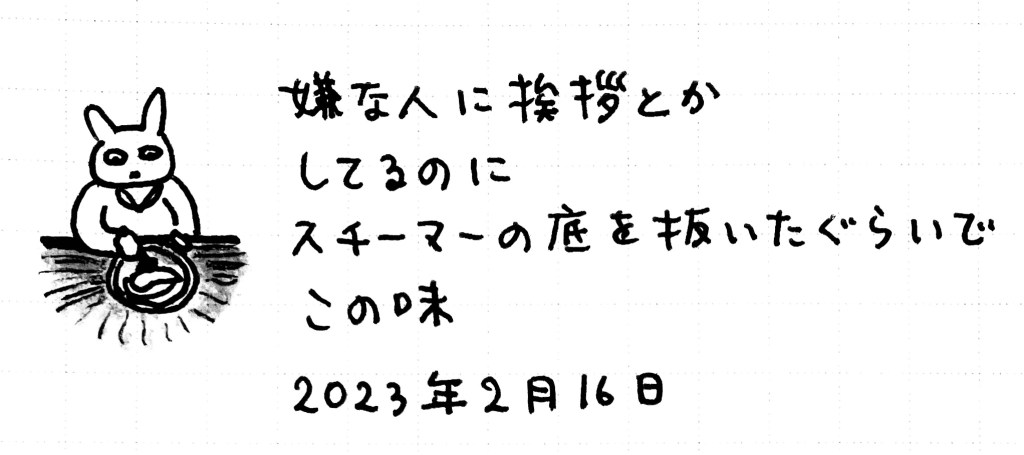 嫌な人に挨拶とか
してるのに
スチーマーの底を抜いたぐらいで
この味
2023年2月16日